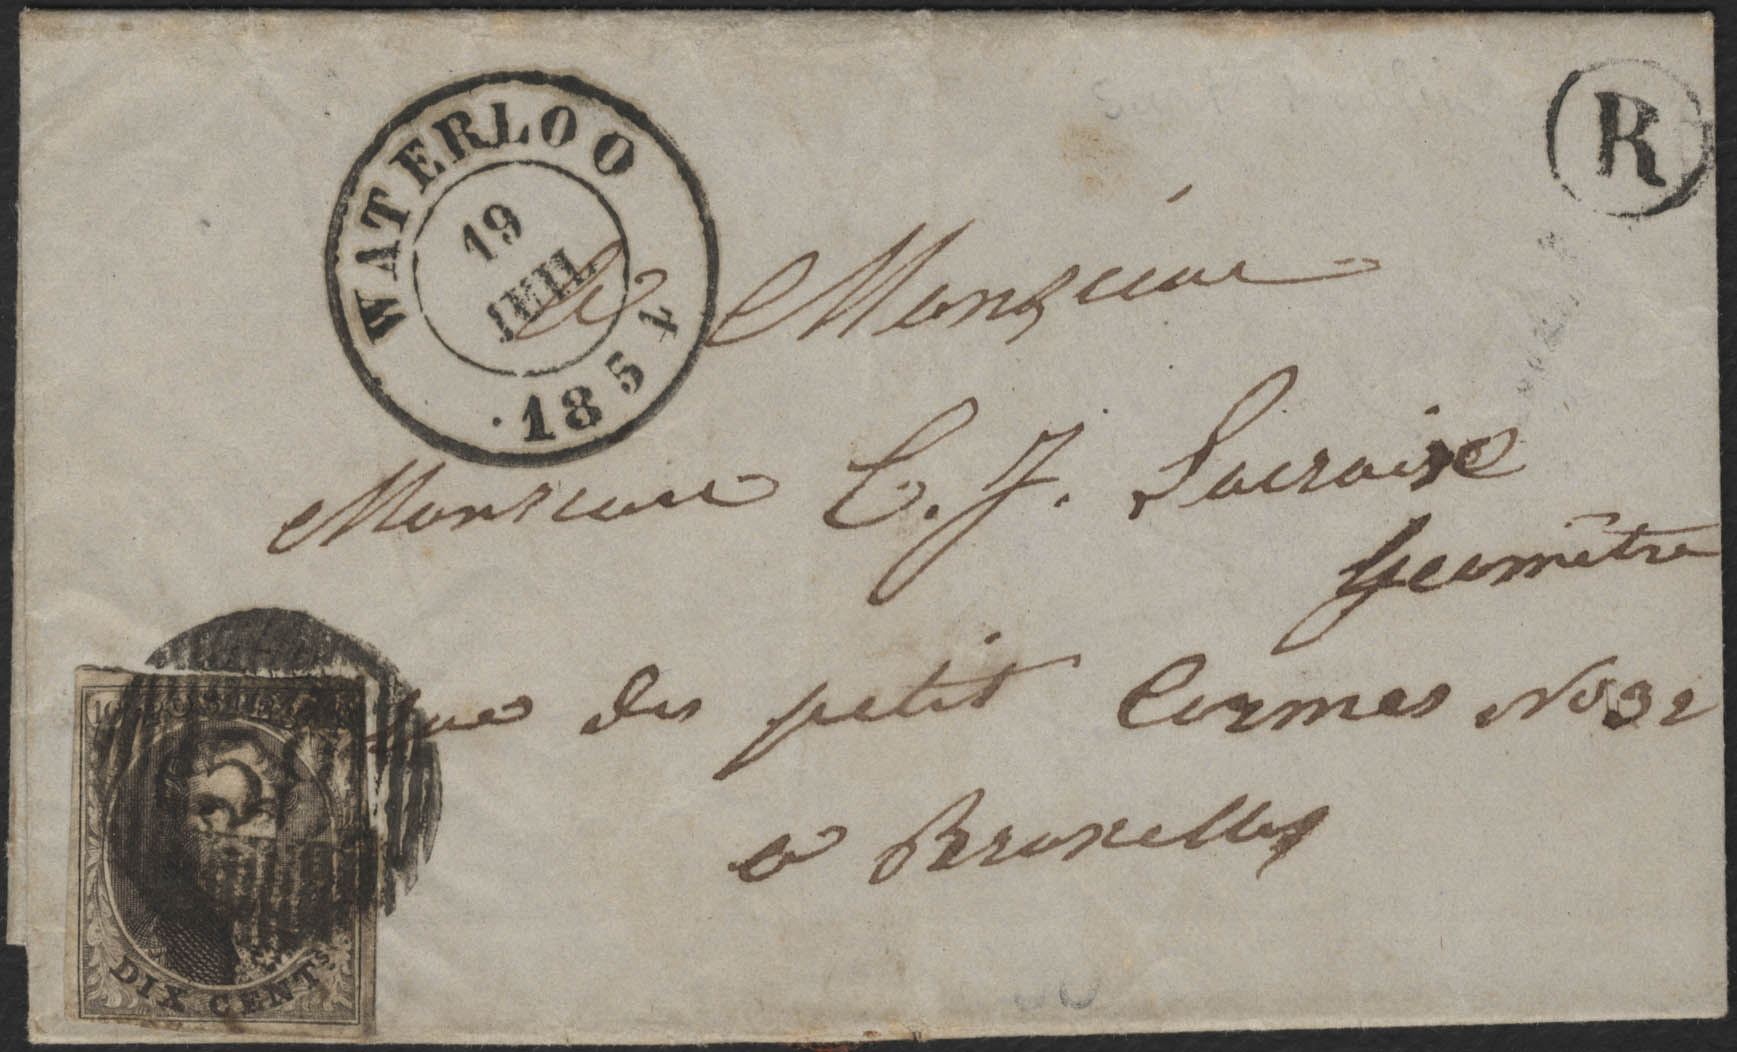 WATERLOO
19
JUIL
1854
R
A Monsieur
Monsieur C. J. Lacroix
Geomêtre
Rue des petit Carmes No 32
a Bruxelles
10 POSTES 10
DIX CENTS